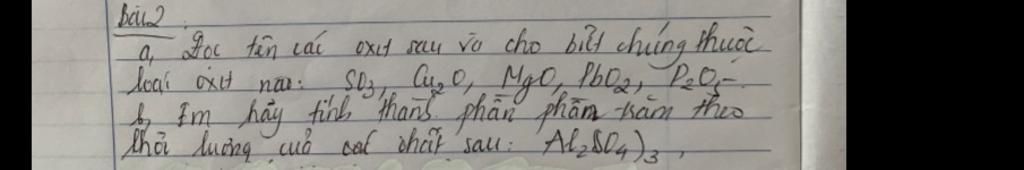 Bài 2
a, Đọc tên các oxit sau và cho biết chúng thuộc
loại oxit nào: SO₃, Cu₂O, MgO, PbO₂, P₂O₅.
b, Em hãy tính thành phần phần trăm theo
khối lượng của các chất sau: Al₂SO₄)₃,